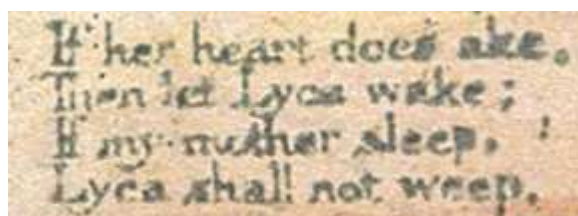 If her heart does ake,
Then let Lyca wake;
If my mother sleep,
Lyca shall not weep.